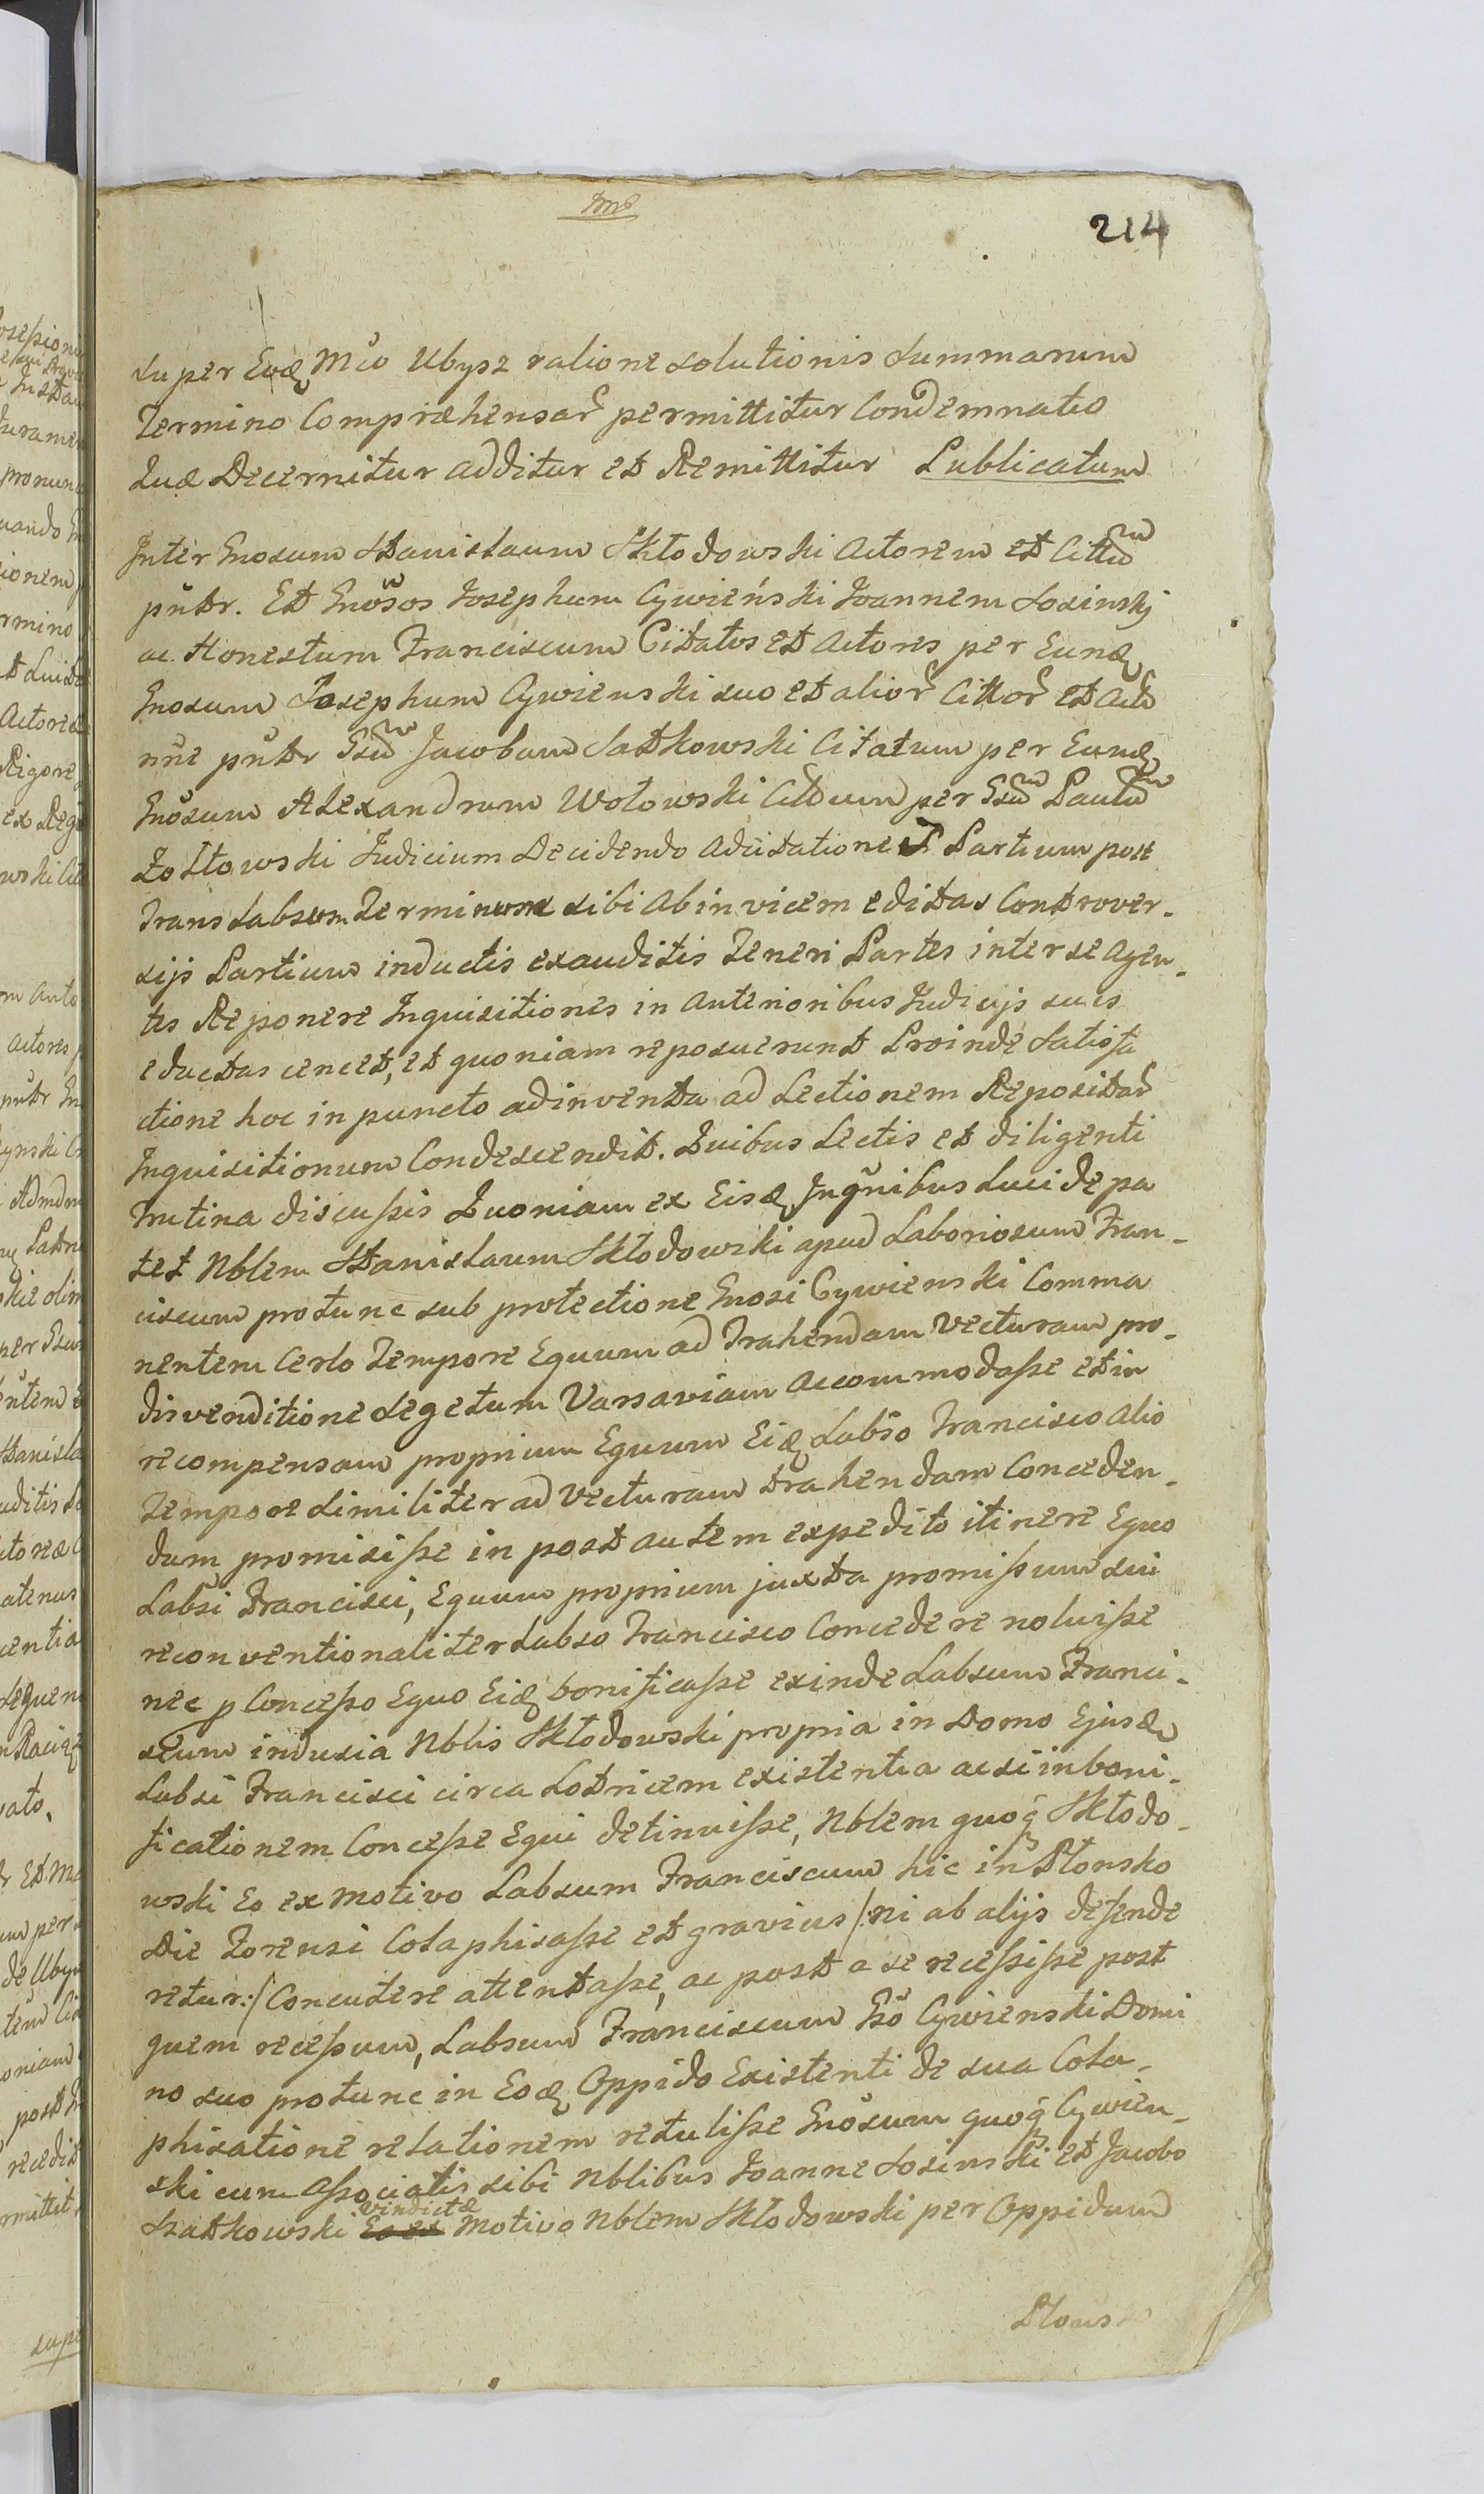 214
super Eodẽ Mco Ubysz ratione solutionis Summarum
Termino Compræhensař permittitur Condemnatio
Quæ Decernitur additur et Remittitur Publicatum
Inter Gnosum Stanislaum Skłodowski Actorem et Cittũm
pñtr. Et Gnõsos Josephum Cywieński Joannem Sosinskj
ac Honestum Franciscum Citatos et Actores per Eundẽ
Gnosum Josephum Cywienski suo et alioř Cittoř et Actř
nñe pñtr Gsũm Jacobum Satkowski Citatum per Eundẽ
Gnõsum Alexandrum Wołowski Cittum per Gsũm Paulũm
Zołtowski Judicium Decidendo Adcitationes Partium post
Translabsum Terminum sibi ab invicem editas Controver-
sijs Partium inductis exauditis Teneri Partes inter se agen-
tes Reponere Inquisitiones in Anterioribus Judicijs suis
eductas censet, et quoniam reposuerunt Proinde Satisfa
ctione hoc in puncto adinventa ad Lectionem Repositař
Inquisitionum Condescendit. Quibus Lectis et diligenti
Trutina discussis Quoniam ex Eisdẽ Inqũibus Lucide pa
tet Nblem Stanislaum Skłodowski apud Laboriosum Fran-
ciscum protunc sub protectione Gnosi Cywienski Comma
nentem Certo Tempore Equum ad Trahendam Vecturam pro-
disvenditione Segetum Varsaviam accommodasse et in
recompensam proprium Equum Eidẽ Labso Francisco alio
Tempore Similiter ad Vecturam trahendam Conceden-
dum promisisse in post autem expedito itinere Equo
Labsi Francisci, Equum proprium juxta promissum sui
reconventionaliter Labso Francisco Concedere noluisse
nec p Concesso Equo Eidẽ bonificasse exinde Labsum Franci-
scum indusia Nblis Skłodowski propria in Domo Ejusdẽ
Labsi Francisci circa Lotricem existentia ac si in boni-
ficationem Concesse Equi detinuisse, Nblem quoq̃ Skłodo-
wski Eo ex Motivo Labsum Franciscum hic in Płonsko
Die Forensi Colaphisasse et gravius /:ni ab alijs defende
retur:/ Concutere attentasse, ac post a se recessisse post
quem recessum, Labsum Franciscum Gsõ Cywienski Domi
no suo protunc in Eodẽ Oppido Existenti de sua Cola-
phisatione relationem retulisse Gnõsum quoq̃ Cywien-
ski cum Associatis sibi Nblibus Joanne Sosinski et Jacobo
Szatkowski vindictæ Motivo Nblem Skłodowski per Oppidum
Płons